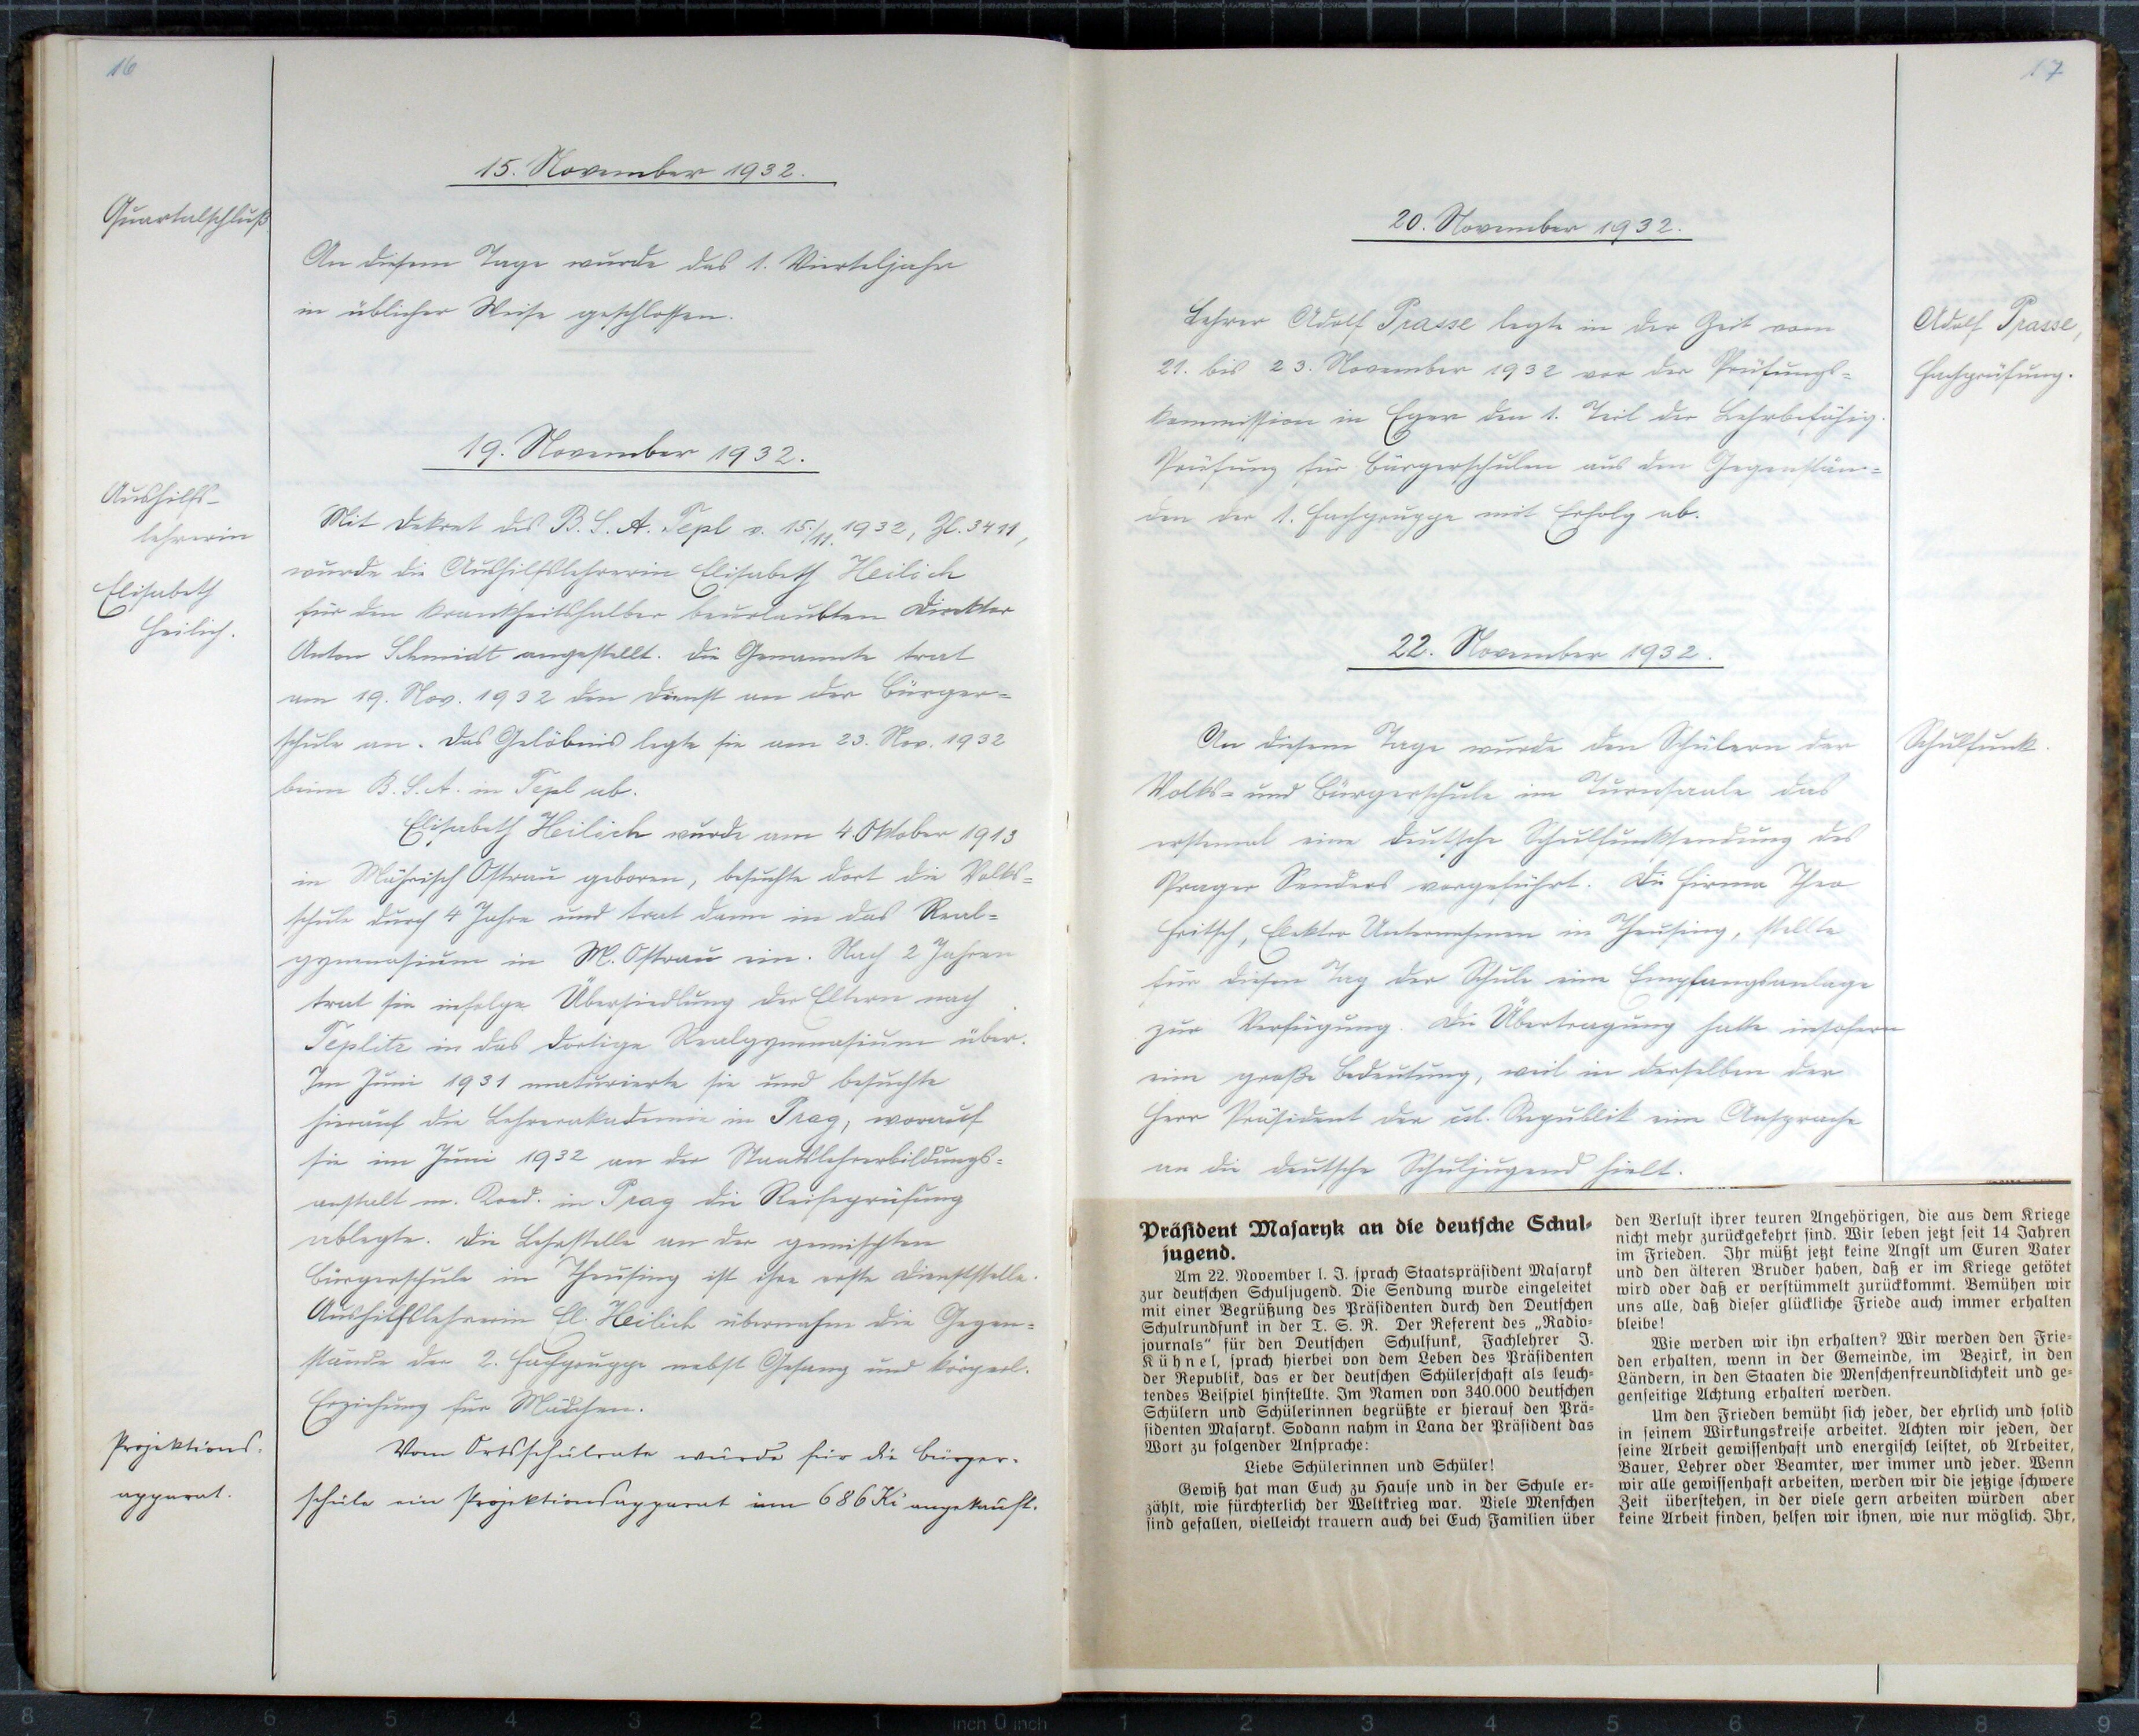 16
15. November 1932.
Quartalschluß
An diesem Tage wurde das 1. Vierteljahr
in üblicher Weise geschlossen.
19. November 1932.
Aushilfs-
lehrerin
Elisabeth
Heilich.
Mit Dekret des B.S.A. Tepl v. 15./11. 1932, Zl. 3411,
wurde die Aushilfslehrerin Elisabeth Heilich
für den krankheitshalber beurlaubten Direktor
Anton Schmidt angestellt. Die Genannte trat
am 19. Nov. 1932 den Dienst an der Bürger=
schule an. Das Gelöbnis legte sie am 23. Nov. 1932
beim B.S.A. in Tepl ab.
Elisabeth Heilich wurde am 4. Oktober 1913
in Mährisch Ostrau geboren, besuchte dort die Volks=
schule durch 4 Jahre und trat dann in das Real=
gymnasium in M. Ostrau ein. Nach 2 Jahren
trat sie infolge Übersiedlung der Eltern nach
Teplitz in das dortige Realgymnasium über.
Im Juni 1931 maturierte sie und besuchte
hierauf die Lehrerakademie in Prag, worauf
sie im Juni 1932 an der Staatslehrerbildungs=
anstalt m. Koed. in Prag die Reifeprüfung
ablegte. Die Lehrstelle an der gemischten
Bürgerschule in Theusing ist ihre erste Dienststelle.
Aushilfslehrerin El. Heilich übernahm die Gegen=
stände der 2. Fachgruppe nebst Gesang und körperl.
Erziehung für Mädchen.
Projektions-
apparat.
Vom Ortsschulrate wurde für die Bürger-
schule ein Projektionsapparat um 686 Kč angekauft.
17
20. November 1932.
Adolf Prasse,
Fachprüfung.
Lehrer Adolf Prasse legte in der Zeit vom
21. bis 23. November 1932 vor der Prüfungs=
kommission in Eger den 1. Teil der Lehrbefähig.
Prüfung für Bürgerschulen aus den Gegenstän=
den der 1. Fachgruppe mit Erfolg ab.
22. November 1932.
Schulfunk.
An diesem Tage wurde den Schülern der
Volks= und Bürgerschule im Turnsaale das
erstemal eine deutsche Schulfunksendung des
Prager Senders vorgeführt. Die Firma Theo
Fritsch, Elektro Unternehmen in Theusing, stellte
für diesen Tag der Schule eine Empfangsanlage
zur Verfügung. Die Übertragung hatte insofern
eine große Bedeutung, weil in derselben der
Herr Präsident der čsl. Republik eine Ansprache
an die deutsche Schuljugend hielt.
Präsident Masaryk an die deutsche Schul-
jugend.
Am 22. November l. J. sprach Staatspräsident Masaryk
zur deutschen Schuljugend. Die Sendung wurde eingeleitet
mit einer Begrüßung des Präsidenten durch den Deutschen
Schulrundfunk in der T. S. R. Der Referent des „Radio-
journals“ für den Deutschen Schulfunk, Fachlehrer J.
Kühnel, sprach hierbei von dem Leben des Präsidenten
der Republik, das er der deutschen Schülerschaft als leuch-
tendes Beispiel hinstellte. Im Namen von 340.000 deutschen
Schülern und Schülerinnen begrüßte er hierauf den Prä-
sidenten Masaryk. Sodann nahm in Lana der Präsident das
Wort zu folgender Ansprache:
Liebe Schülerinnen und Schüler!
Gewiß hat man Euch zu Hause und in der Schule er-
zählt, wie fürchterlich der Weltkrieg war. Viele Menschen
sind gefallen, vielleicht trauern auch bei Euch Familien über
den Verlust ihrer teuren Angehörigen, die aus dem Kriege
nicht mehr zurückgekehrt sind. Wir leben jetzt seit 14 Jahren
im Frieden. Ihr müßt jetzt keine Angst um Euren Vater
und den älteren Bruder haben, daß er im Kriege getötet
wird oder daß er verstümmelt zurückkommt. Bemühen wir
uns alle, daß dieser glückliche Friede auch immer erhalten
bleibe!
Wie werden wir ihn erhalten? Wir werden den Frie-
den erhalten, wenn in der Gemeinde, im Bezirk, in den
Ländern, in den Staaten die Menschenfreundlichkeit und ge-
genseitige Achtung erhalten werden.
Um den Frieden bemüht sich jeder, der ehrlich und solid
in seinem Wirkungskreise arbeitet. Achten wir jeden, der
seine Arbeit gewissenhaft und energisch leistet, ob Arbeiter,
Bauer, Lehrer oder Beamter, wer immer und jeder. Wenn
wir alle gewissenhaft arbeiten, werden wir die jetzige schwere
Zeit überstehen, in der viele gern arbeiten würden aber
keine Arbeit finden, helfen wir ihnen, wie nur möglich. Ihr,
8 7 6 5 4 3 2 1 inch 0 inch 1 2 3 4 5 6 7 8 9